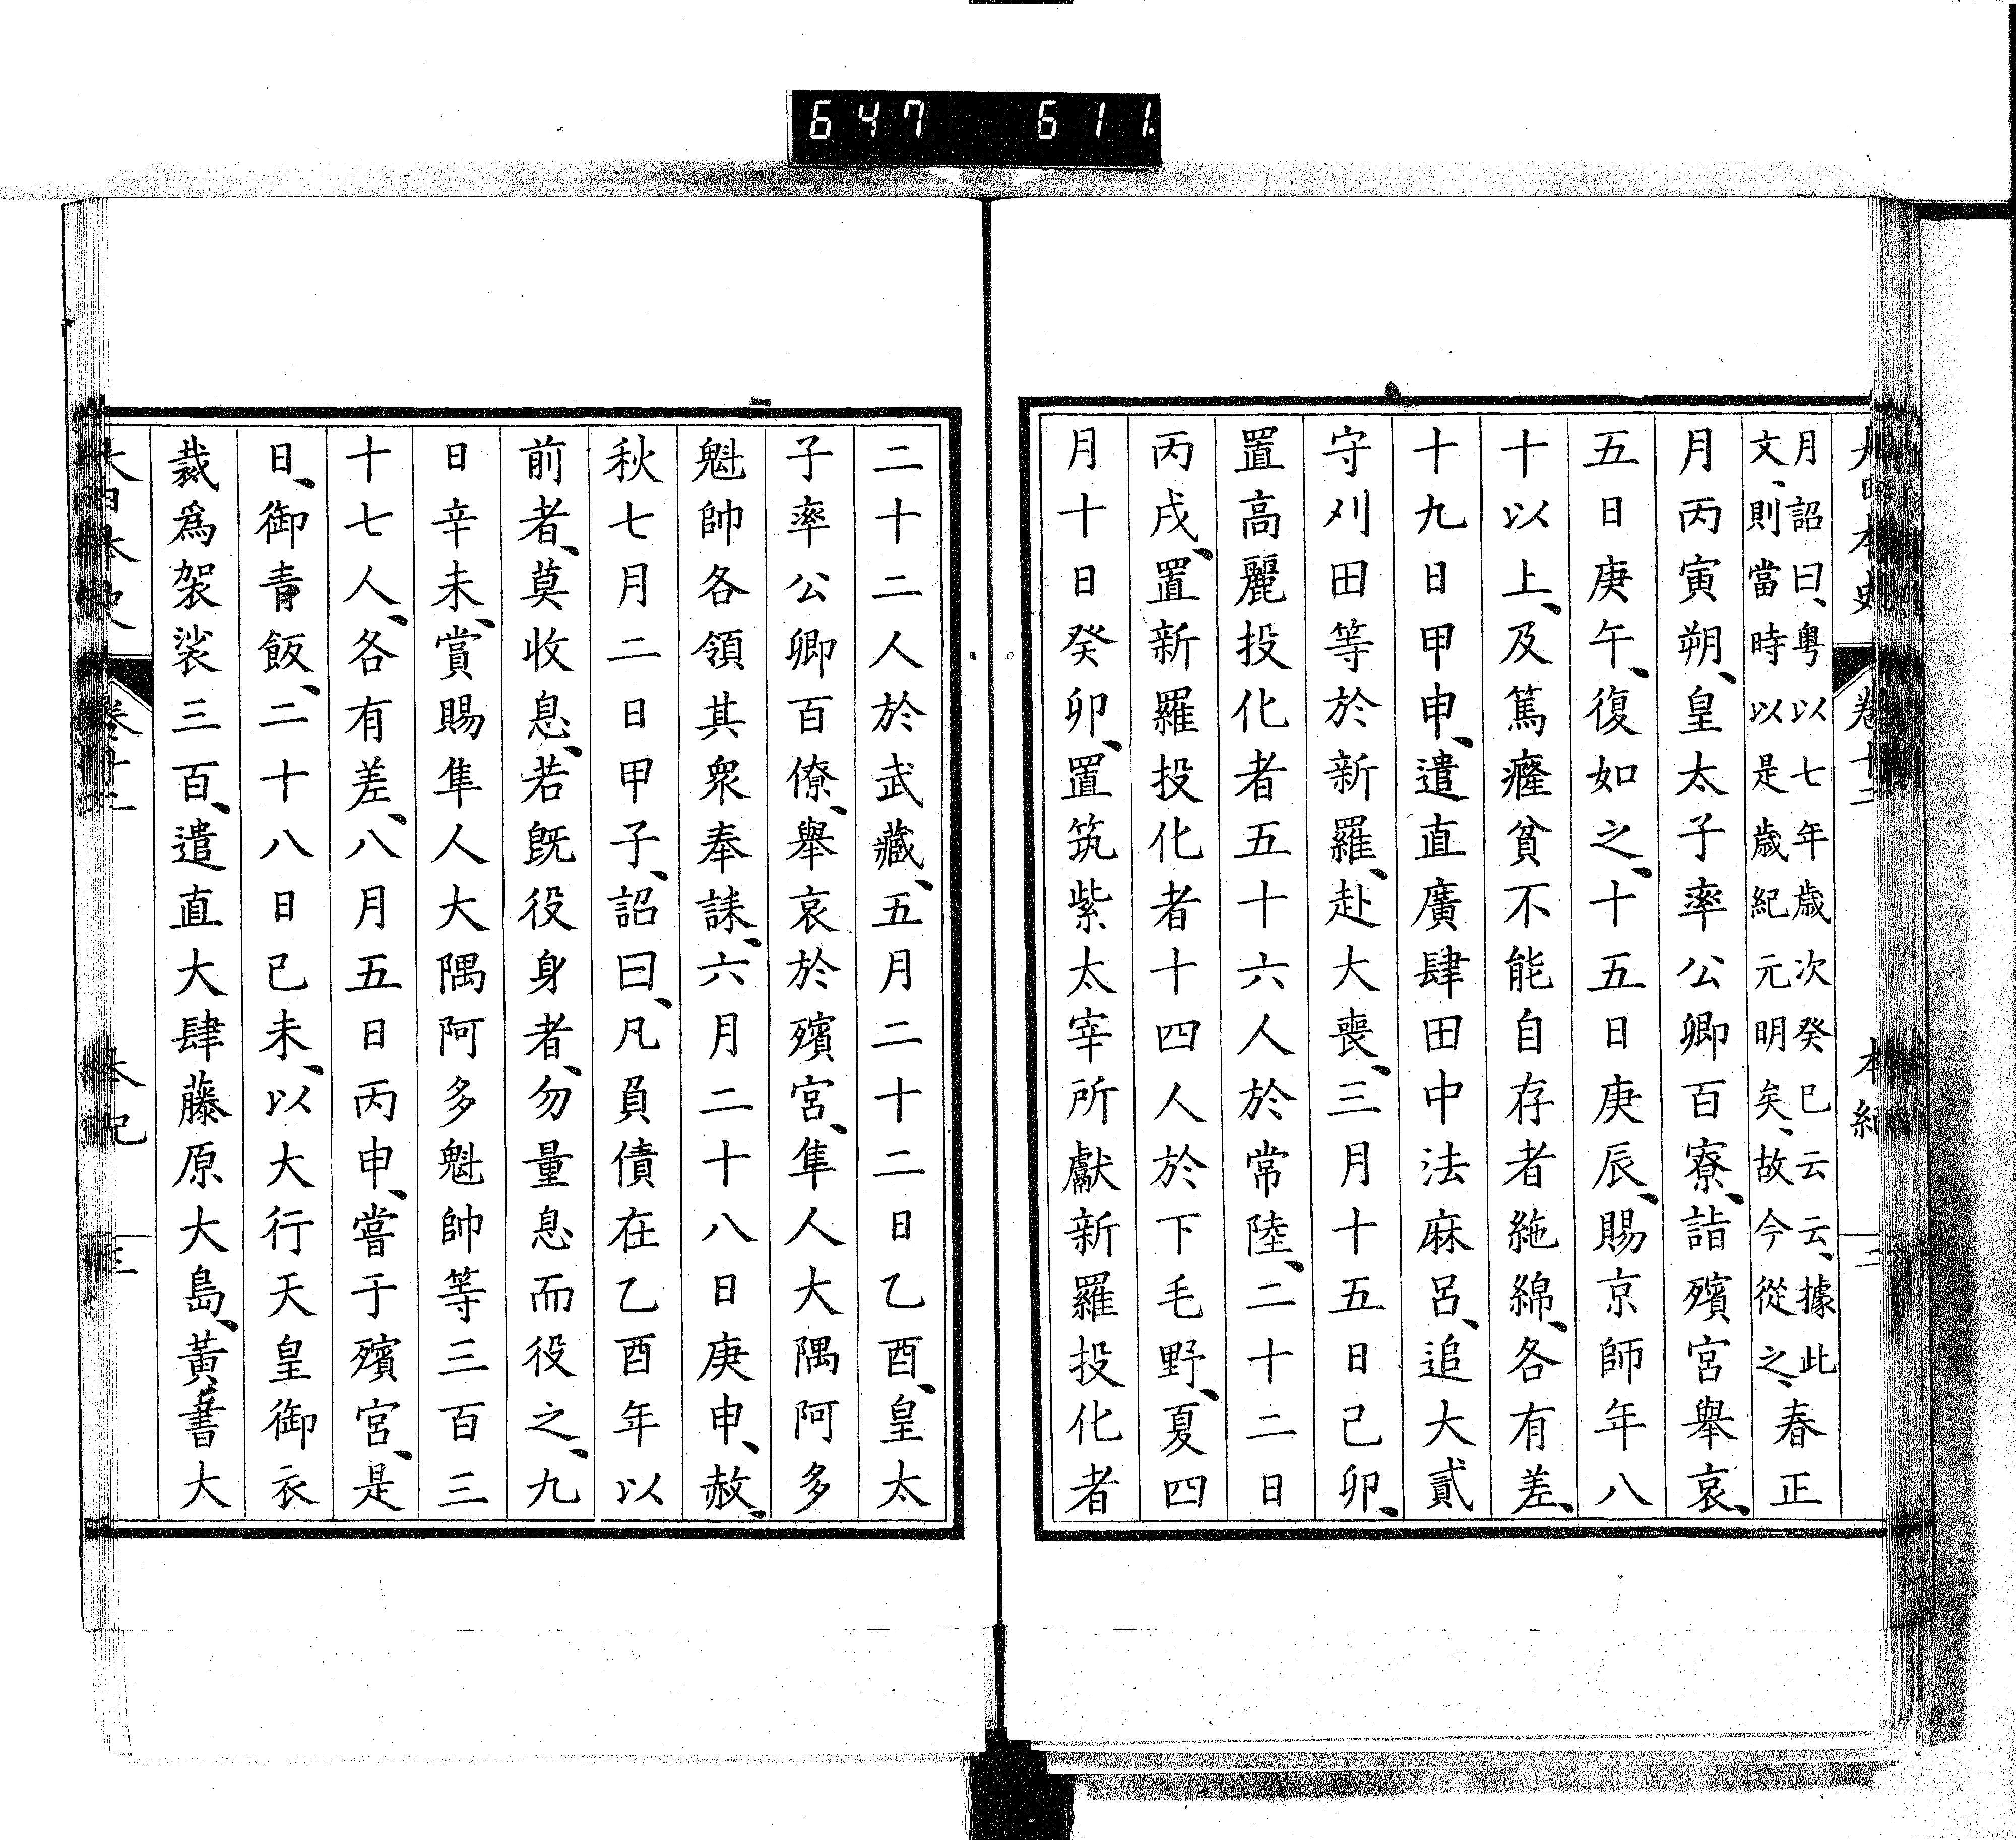 647 611
大日本史 卷十二 本紀 二
月詔曰、粤以七年歳次癸巳云云、據此
文、則當時以是歳紀元明矣、故今從之、春正
月丙寅朔、皇太子率公卿百寮、詣殯宮舉哀、
五日庚午、復如之、十五日庚辰、賜京師年八
十以上、及篤癃貧不能自存者絁綿、各有差、
十九日甲申、遣直廣肆田中法麻呂、追大貳
守刈田等於新羅、赴大喪、三月十五日己卯、
置高麗投化者五十六人於常陸、二十二日
丙戌、置新羅投化者十四人於下毛野、夏四
月十日癸卯、置筑紫太宰所獻新羅投化者
二十二人於武藏、五月二十二日乙酉、皇太
子率公卿百僚、舉哀於殯宮、隼人大隅阿多
魁帥各領其衆奉誄、六月二十八日庚申、赦、
秋七月二日甲子、詔曰、凡負債在乙酉年以
前者、莫收息、若既役身者、勿量息而役之、九
日辛未、賞賜隼人大隅阿多魁帥等三百三
十七人、各有差、八月五日丙申、嘗于殯宮、是
日、御青飯、二十八日己未、以大行天皇御衣
裁爲袈裟三百、遣直大肆藤原大島、黃書大
大日本史 卷十二 本紀 三